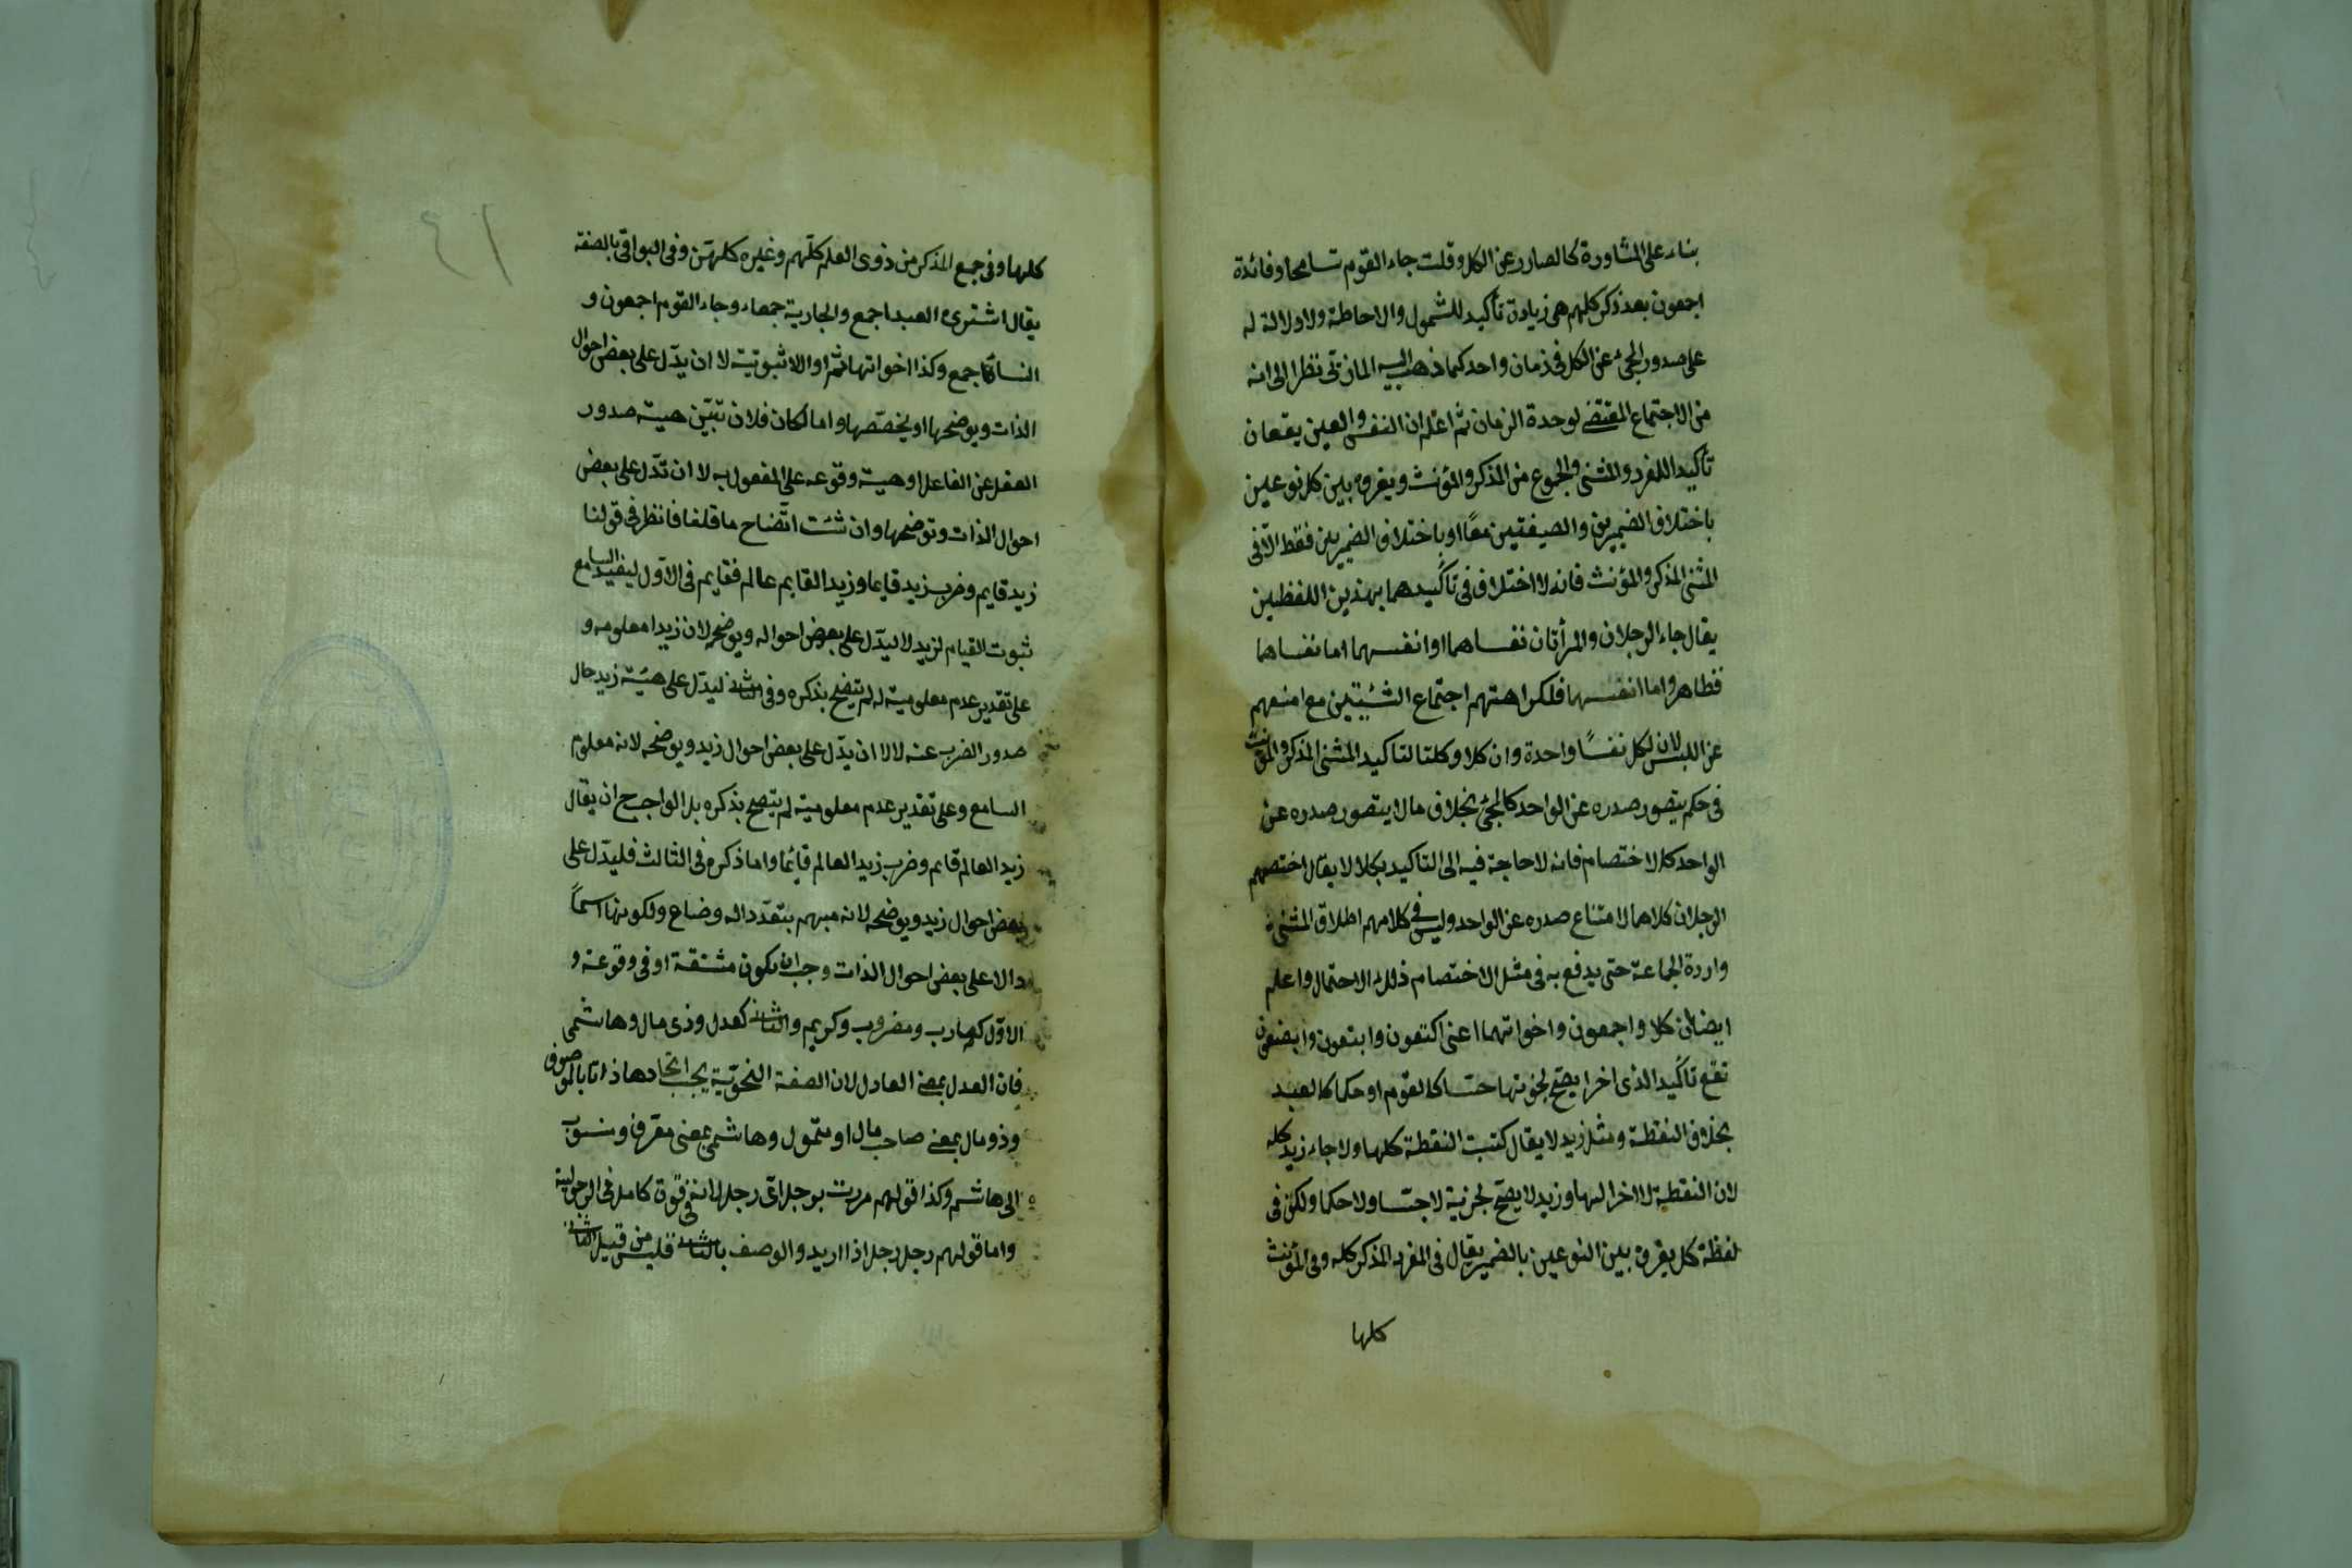 بناء على المشاورة كالصادر عن الكل وقلت جاء القوم تسامحا وفائدة
اجمعون بعد ذكر كلهم هى زيادة تأكيد للشمول والاحاطة ولا دلالة له
على صدور المجئ عن الكل فى زمان واحد كما ذهب اليه المازنى نظرا الى انه
من الاجتماع المقتضى لوحدة الزمان ثم اعلم ان النفس والعين يقعان
تأكيدا للمفرد والمثنى والمجموع من المذكر والمؤنث ويفرق بين كل نوعين
باختلاف الضميرين والصيغتين معًا او باختلاف الضميرين فقط الّا فى
المثنى المذكر والمؤنث فانه لا اختلاف فى تأكيدهما بهذين اللفظين
يقال جاء الرجلان والمرأتان نفساهما او انفسهما اما نفساهما
فظاهر واما انفسهما فلكراهتهم اجتماع الشيئين مع امنهم
عن اللبس لان لكل نفسًا واحدة وان كلا وكلتا لتاكيد المثنى المذكر والمؤنث
فى حكم يتصور صدره عن الواحد كالمجئ بخلاف ما لا يتصور صدره عن
الواحد كالاختصام فانه لا حاجة فيه الى التاكيد بكلا لا يقال اختصم
الرجلان كلاهما لامتناع صدره عن الواحد وليس فى كلامهم اطلاق المثنى
واردة الجماعة حتى يدفع به فى مثل الاختصام ذلك الاحتمال واعلم
ايضا ان كلا واجمعون واخواتهما اعنى اكتعون وابتعون وابصعون
تقع تأكيدا لذى اجزا يصح تجزيها حسّا كالقوم او حكما كالعبد
بخلاف النقطة ومثل زيد لا يقال كتبت النقطة كلها ولا جاء زيد كله
لان النقطة لا اجزا لها وزيد لا يصحّ تجزيه لا حسّا ولا حكما ولكن فى
لفظة كل يفرق بين النوعين بالضمير يقال فى المفرد المذكر كله وفى المؤنث
كلها
٤١
كلها وفى جمع المذكر من ذوى العلم كلّهم وغيره كلهنّ وفى البواقى بالصفة
يقال اشترى العبد اجمع والجارية جمعاء وجاء القوم اجمعون و
النساء جمع وكذا اخواتها ثم اولا لا ان يدّل على بعض احوال
الذات ويوضحها او يخصّصها واما لكان فلان تبيّن هيئة صدور
الفعل عن الفاعل او هيئة وقوعه على المفعول به لا ان تدّل على بعض
احوال الذات وتوضحها وان شئت اتّضاح ما قلنا فانظر فى قولنا
زيد قايم وضرب زيد قايما وزيد القايم عالم فقايم فى الاوّل ليفيد السامع
ثبوت القيام لزيد لا ليدّل على بعض احواله ويوضحه لان زيدا معلومه و
على تقدير عدم معلوميته له لم يتضح بذكره وفى الثانى ليدّل على هيئة زيد حال
صدور الضرب عنه لا لا ان يدّل على بعض احوال زيد ويوضحه لانه معلوم
السامع وعلى تقدير عدم معلوميته لم يتضح بذكره بل الواجب ح ان يقال
زيد العالم قايم وضرب زيد العالم قايمًا واما ذكره فى الثالث فليدّل على
بعض احوال زيد ويوضحه لانه مبهم بتعدّد الوضاع ولكونها اسمًا
دالا على بعض احوال الذات وجب ان يكون مشتقة او فى وقوعه و
الاوّل كضارب ومضروب وكريم والثانى كعدل وذى مال وهاشمى
فان العدل بمعنى العادل لان الصفة النحويّة يجب اتحادها ذاتا بالموصوف
وذو مال بمعنى صاحب مال او متمول وهاشمى بمعنى معرف ومنسوب
الى هاشم وكذا قولهم مررت برجل اىّ رجل لانه فى قوة كامل فى الرجولية
واما قولهم رجل رجل اذا اريد والوصف بالثانى فليس من قبيل الثانى